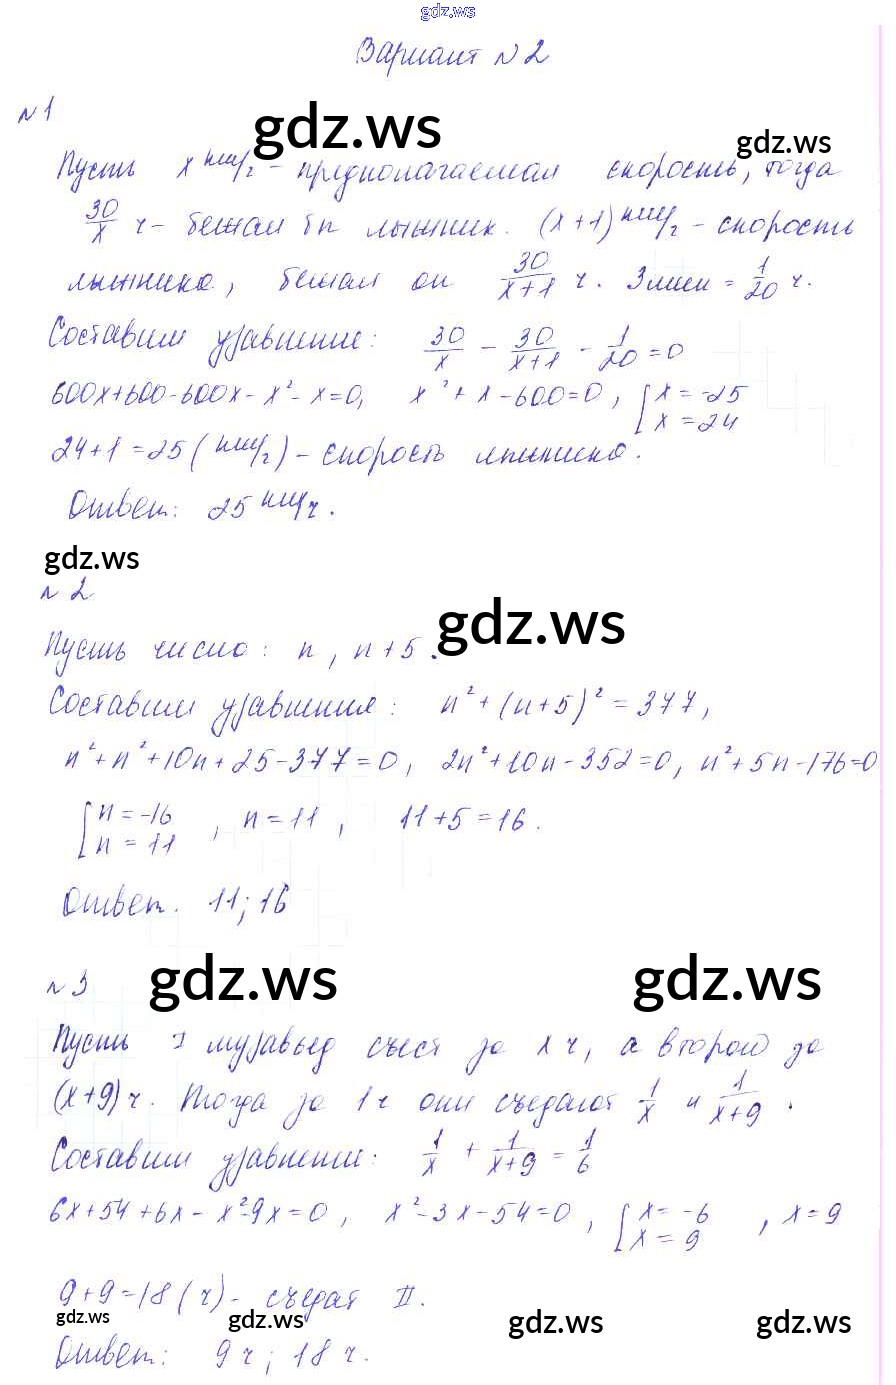 gdz.ws
Вариант №2
№1
gdz.ws
gdz.ws
Пусть x км/г - предполагаемая скорость, тогда
30/x ч - бежал бы лыжник. (x+1) км/г - скорость
лыжника, бежал он 30/(x+1) ч. 3 мин = 1/20 ч.
Составим уравнение: 30/x - 30/(x+1) - 1/20 = 0
600x+600-600x-x²-x=0, x²+x-600=0, [x=-25 x=24
24+1=25 (км/г) - скорость лыжника.
Ответ: 25 км/ч.
gdz.ws
№2
gdz.ws
Пусть число: n, n+5.
Составим уравнения: n²+(n+5)²=377,
n²+n²+10n+25-377=0, 2n²+10n-352=0, n²+5n-176=0
[n=-16 n=11, n=11, 11+5=16.
Ответ. 11; 16
gdz.ws
gdz.ws
№3
Пусть I муравьед съест за x ч, а второй за
(x+9) ч. Тогда за 1 ч они съедают 1/x и 1/(x+9).
Составим уравнение: 1/x + 1/(x+9) = 1/6
6x+54+6x-x²-9x=0, x²-3x-54=0, [x=-6 x=9, x=9
9+9=18 (ч) - съедат II.
gdz.ws
gdz.ws
gdz.ws
gdz.ws
Ответ: 9 ч; 18 ч.